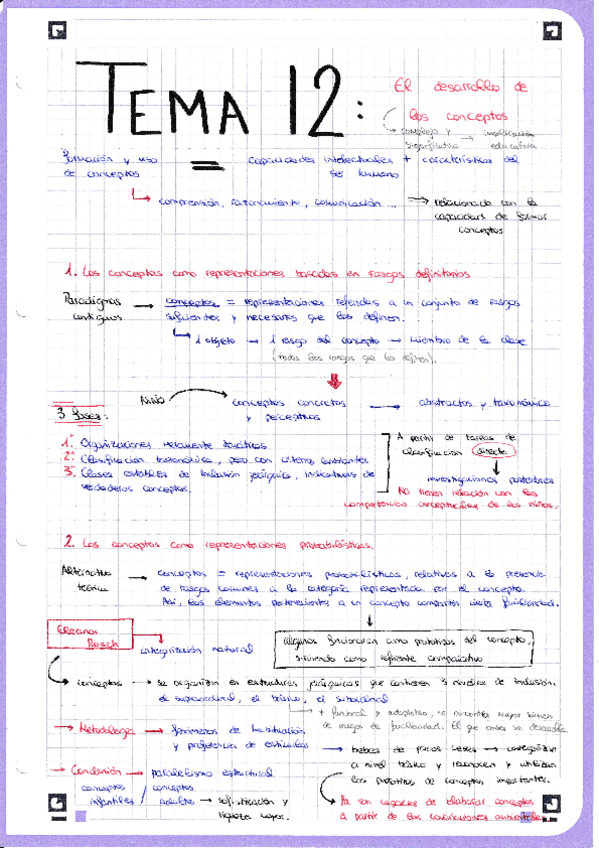 TEMA 12:
El desarrollo de
los conceptos
complejo y → implicación
significativo educativa
formación y uso = capacidades intelectuales + características del
de conceptos ser humano
comprensión, razonamiento, comunicación... ⇒ relacionado con la
capacidad de formar
conceptos
1. Los conceptos como representaciones basadas en rasgos definitorios
Paradigmas → conceptos = representaciones referidas a un conjunto de rasgos
antiguos suficientes y necesarios que los definen.
1 objeto → 1 rasgo del concepto → miembro de la clase
(todos los rasgos que lo definen).
Niño conceptos concretos → abstractos y taxonómico
y perceptivos
3 fases:
1º Organizaciones meramente temáticas
2º Clasificación taxonómica, pero con criterios cambiantes
3º Clases estables de inclusión jerárquica, indicativas de
verdaderos conceptos.
A partir de tareas de
clasificación directa
investigaciones posteriores
No tienen relación con las
competencias conceptuales de los niños.
2. Los conceptos como representaciones probabilísticas.
Alternativa → conceptos = representaciones probabilísticas, relativas a la presencia
teórica de rasgos comunes a la categoría representada por el concepto.
Así, los elementos pertenecientes a un concepto comparten cierta familiaridad.
Eleanor
Rosch
categorización natural
algunos funcionarán como prototipos del concepto,
sirviendo como referente comparativo
conceptos → se organizan en estructuras jerárquicas que contienen 3 niveles de inclusión:
el supraordinal, el básico, el subordinal
+ funcional y adaptativo,
de rasgos de familiaridad. El que antes se desarrolla.
→ Metodología → fenómenos de habituación
y preferencia de estímulos → bebés de pocos meses → categorizan
a nivel básico y reconocen y utilizan
los prototipos de conceptos importantes.
→ Conclusión → paralelismo estructural
conceptos / conceptos
infantiles / adultos → sofisticación y
riqueza mayor.
Ya son capaces de elaborar conceptos
a partir de las covariaciones ambientales.